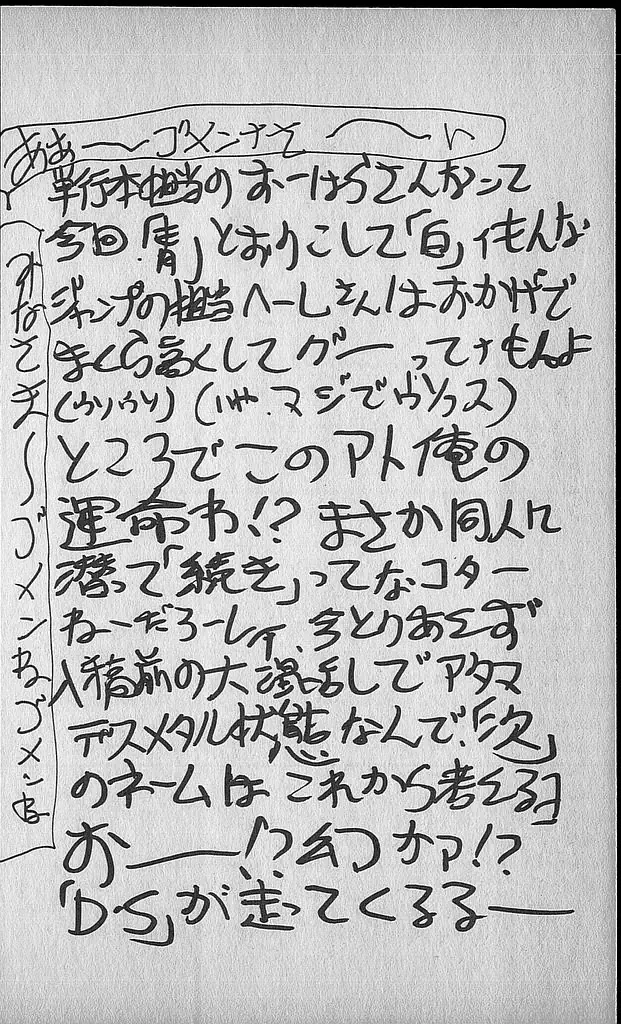 ああ〜ゴメンナそ〜い
単行本担当のおーはらさんなって
今回「青」とおりこして「白」いもんな
ジャンプの担当へーしさんはおかげで
まくら高くしてグーってなもんよ
(ウソウソ)(いや、マジでウソっス)
ところでこのアト俺の
運命わ!?まさか同人に
潜って「続き」ってなコター
ねーだろーしィ、今とりあえず
入稿前の大混乱でアタマ
デスメタル状態なんで、「次」
のネームはこれから考えるヨ
お——!?幻かァ!?
「D・S」が走ってくるる——
みなさま〜ゴメンねゴメンね